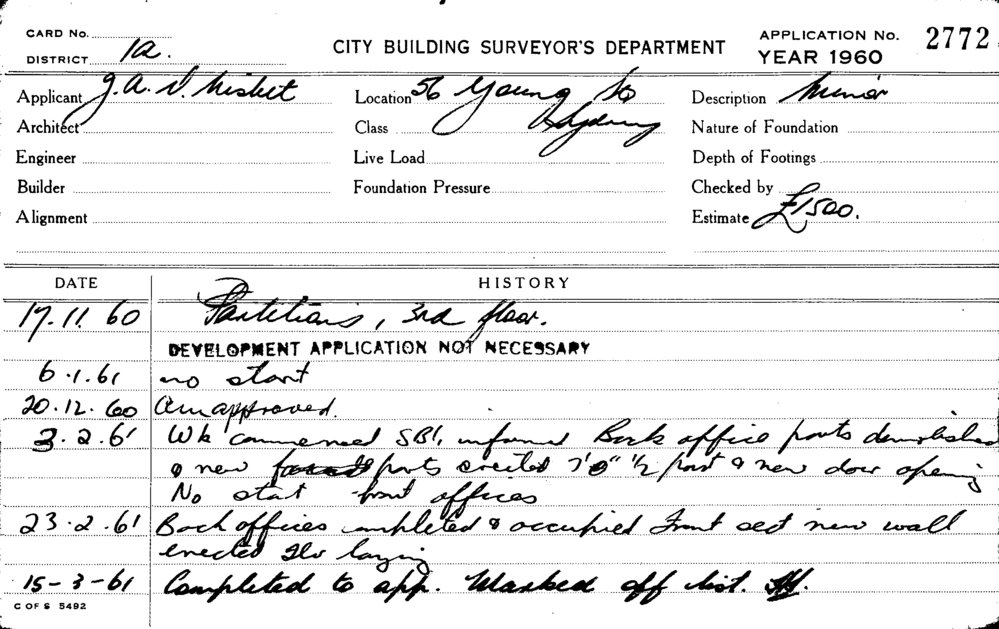 CARD No.
DISTRICT 1a.
CITY BUILDING SURVEYOR'S DEPARTMENT
APPLICATION No. 2772
YEAR 1960
Applicant J. A. D. Nisbet Location 56 Young St Description Minor
Architect Class Sydney Nature of Foundation
Engineer Live Load Depth of Footings
Builder Foundation Pressure Checked by
Alignment Estimate £1500.
DATE HISTORY
17.11.60 Partitions, 3rd floor.
DEVELOPMENT APPLICATION NOT NECESSARY
6.1.61 no start
20.12.60 approved.
3.2.61 Wk commenced informed Back office parts demolished
& new parts erected 7'0" ½ part & new door opening
No start front offices
23.2.61 Back offices completed & occupied Front sect new wall
erected laying
15-3-61 Completed to app. Marked off list.
C OF S 5492